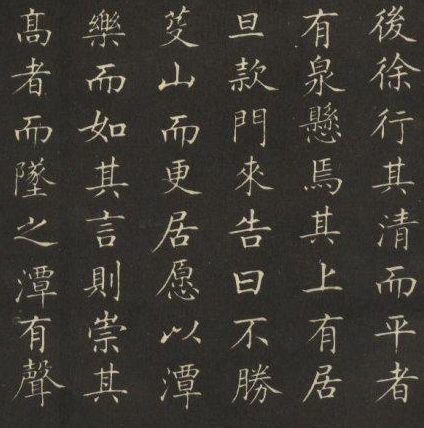 後徐行其清而平者
有泉懸焉其上有居
旦款門來告曰不勝
芟山而更居愿以潭
樂而如其言則崇其
髙者而墜之潭有聲